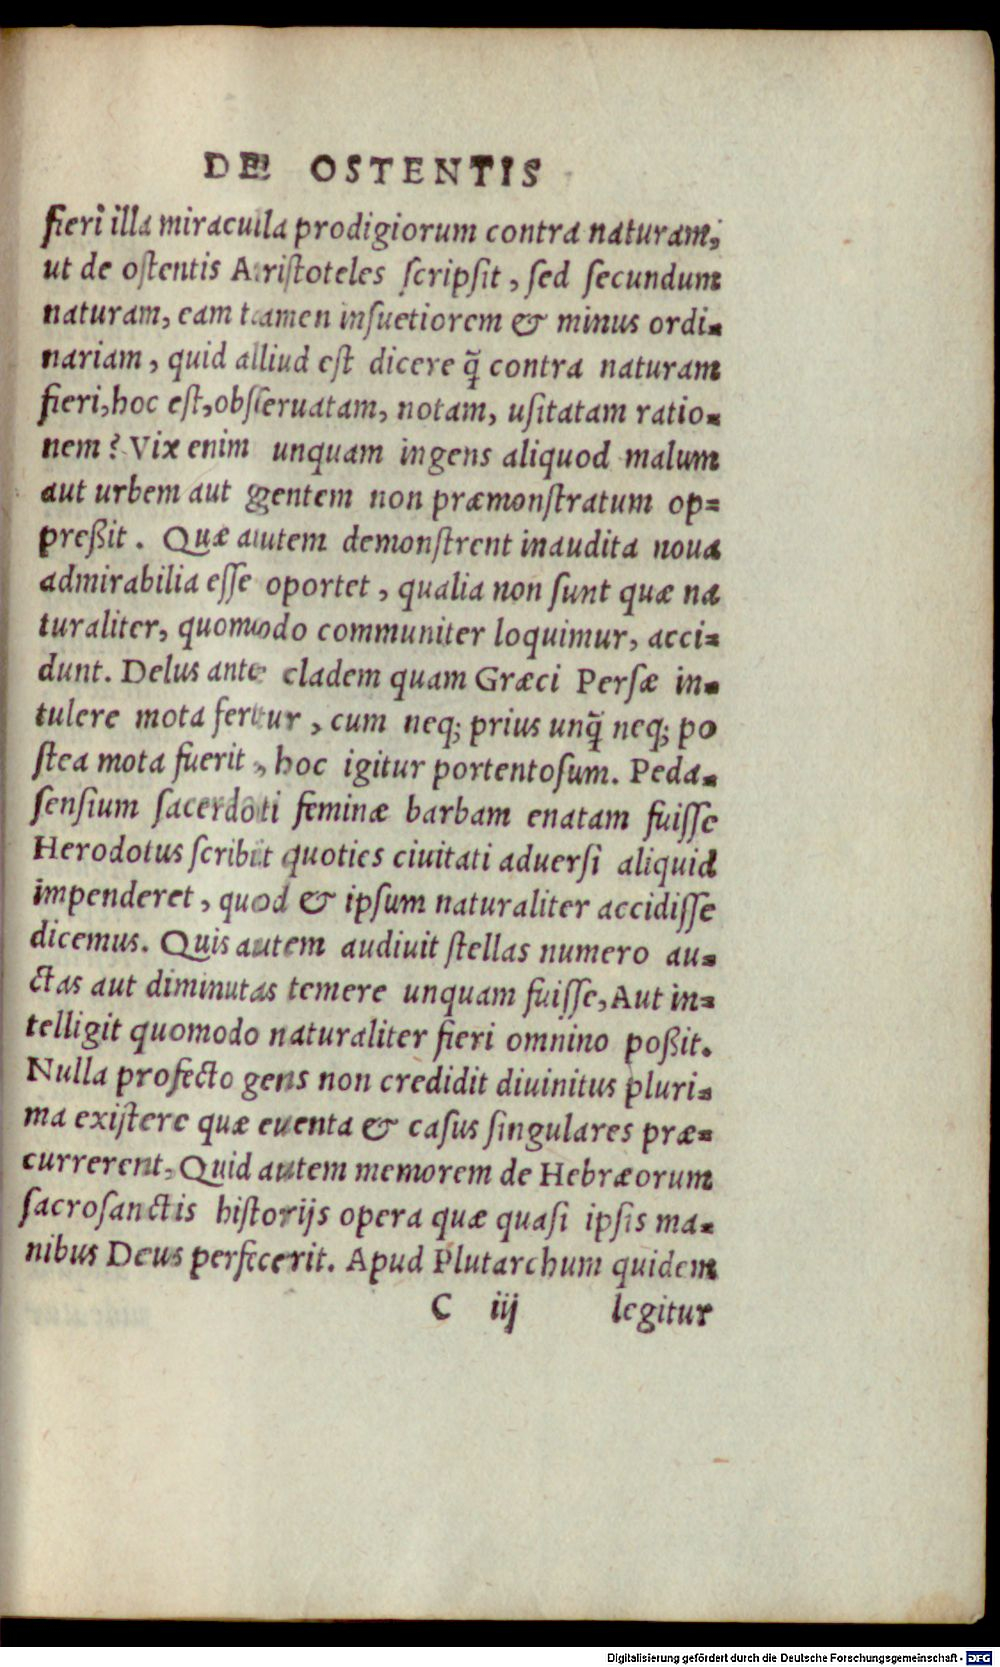 DE OSTENTIS
fieri illa miracula prodigiorum contra naturam,
ut de ostentis Aristoteles scripsit, sed secundum
naturam, eam tamen insuetiorem & minus ordi-
nariam, quid aliud est dicere q̃ contra naturam
fieri, hoc est, obseruatam, notam, usitatam ratio-
nem? Vix enim unquam ingens aliquod malum
aut urbem aut gentem non præmonstratum op-
preßit. Quæ autem demonstrent inaudita noua
admirabilia esse oportet, qualia non sunt quæ na
turaliter, quomodo communiter loquimur, acci-
dunt. Delus ante cladem quam Græci Persæ in-
tulere mota fertur, cum neq; prius unq̃ neq; po
stea mota fuerit, hoc igitur portentosum. Peda-
sensium sacerdoti feminæ barbam enatam fuisse
Herodotus scribit quoties ciuitati aduersi aliquid
impenderet, quod & ipsum naturaliter accidisse
dicemus. Quis autem audiuit stellas numero au-
ctas aut diminutas temere unquam fuisse, Aut in-
telligit quomodo naturaliter fieri omnino poßit.
Nulla profecto gens non credidit diuinitus pluri-
ma existere quæ euenta & casus singulares præ-
currerent. Quid autem memorem de Hebræorum
sacrosanctis historijs opera quæ quasi ipsis ma-
nibus Deus perfecerit. Apud Plutarchum quidem
C iij legitur
Digitalisierung gefördert durch die Deutsche Forschungsgemeinschaft - DFG